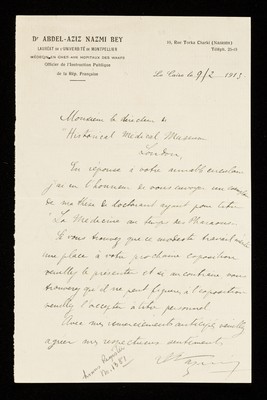 Dr ABDEL-AZIZ NAZMI BEY
LAURÉAT DE L'UNIVERSITÉ DE MONTPELLIER
MÉDECIN EN CHEF AUX HOPITAUX DES WAKFS
Officier de l'Instruction Publique
de la Rép. Française
10, Rue Torka Charki (NASRIEH)
Téléph.
Le Caire le 9/2 1913
Monsieur le directeur de
"Historical Medical Museum
London,
En réponse à votre aimable
j'ai l'honneur de vous envoyer un
de ma thèse de doctorat ayant pour titre
"La Médecine au temps des Pharaons"
Si vous trouvez que ce modeste travail
une place à votre prochaine exposition
veuillez le présenter et si au contraire vous
trouverez qu'il ne peut figurer à l'exposition
veuillez l'accepter à titre personnel
Avec mes remerciements anticipés veuillez
agréer mes respectueux sentiments